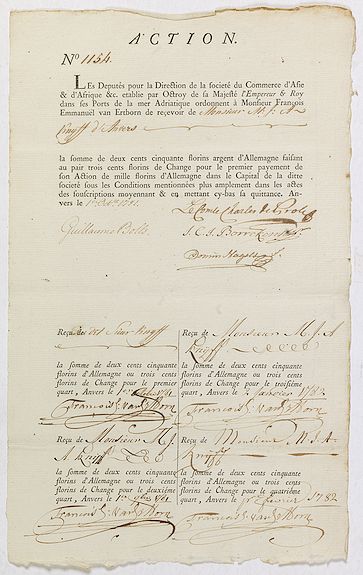 ACTION.
No 1154.
LEs Deputés pour la Direction de la societé du Commerce d'Asie
& d'Afrique &c. etablie par Octroy de sa Majesté l'Empereur & Roy
dans ses Ports de la mer Adriatique ordonnent à Monsieur François
Emmanuel van Ertborn de reçevoir de Monsieur M. J. A
Knyff d'Anvers
la somme de deux cents cinquante florins argent d'Allemagne faisant
au pair trois cents florins de Change pour le premier payement de
son Action de mille florins d'Allemagne dans le Capital de la ditte
societé sous les Conditions mentionnées plus amplement dans les actes
des souscriptions moyennant & en mettant cy-bas sa quittance. An-
vers le 1781.
Le Comte Charles de Proli
Guillaume Bolts
J. C. J.
Reçu de Knyff
la somme de deux cents cinquante
florins d'Allemagne ou trois cents
florins de Change pour le premier
quart, Anvers le 1781
François E. van Ertborn
Reçu de Monsieur M. J.
A Knyff
la somme de deux cents cinquante
florins d'Allemagne ou trois cents
florins de Change pour le deuxième
quart, Anvers le 1781
François E. van Ertborn
Reçu de Monsieur M. J. A
Knyff
la somme de deux cents cinquante
florins d'Allemagne ou trois cents
florins de Change pour le troisième
quart, Anvers le 2 Janvier 1782
François E. van Ertborn
Reçu de Monsieur M. J. A
Knyff
la somme de deux cents cinquante
florins d'Allemagne ou trois cents
florins de Change pour le quatrième
quart, Anvers le fevrier 1782
François E. van Ertborn